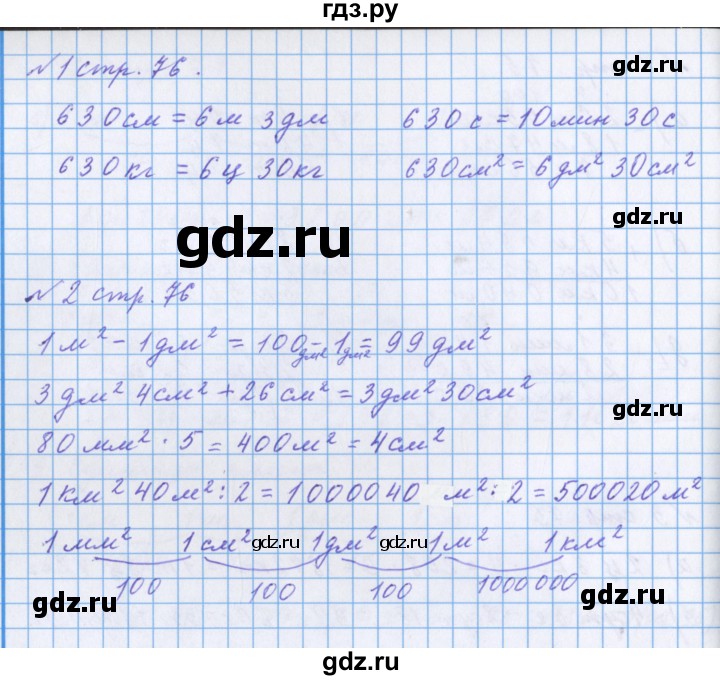 гдз.ру
№1 стр. 76.
gdz.ru
630см = 6м 3дм 630с = 10мин 30с
630кг = 6ц 30кг 630см² = 6дм² 30см²
gdz.ru
gdz.ru
№2 стр. 76
1м² - 1дм² = 100дм² - 1дм² = 99дм²
3дм² 4см² + 26см² = 3дм² 30см²
gdz.ru
80мм² · 5 = 400м² = 4см²
1км² 40м² : 2 = 1000040 м² : 2 = 500020м²
1мм² 1см² gdz.ru 1дм² gdz.ru 1м² 1км²
100 100 100 1000000
gdz.ru gdz.ru
gdz.ru